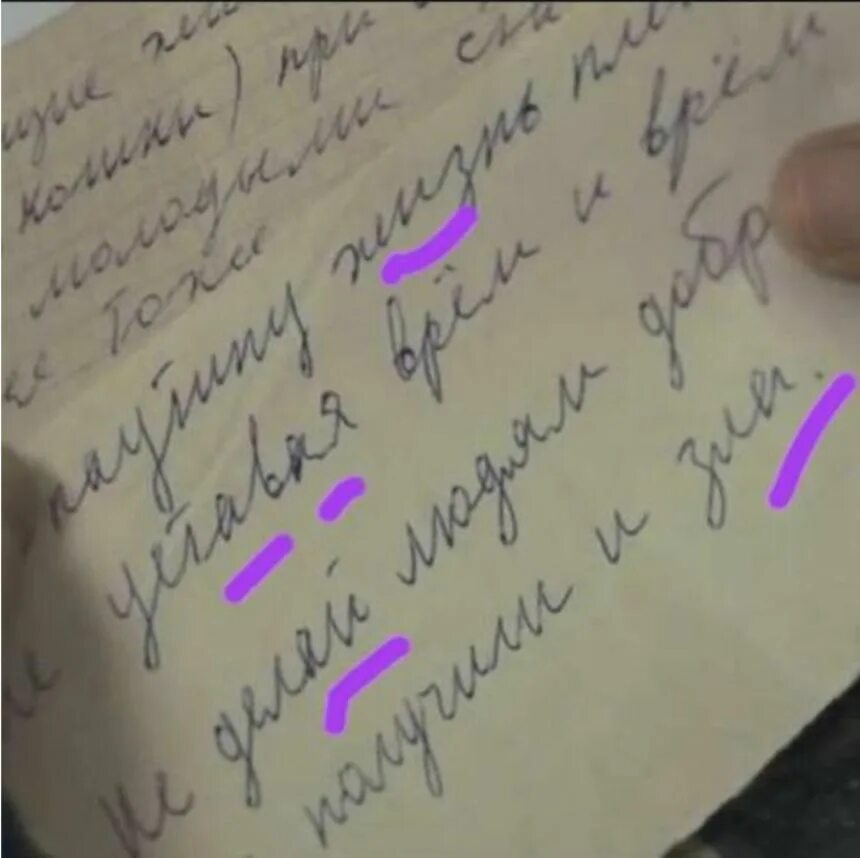 при
молодыми
же тоже
паутину жизнь пле
уставая врём и врём
не делай людям добр
получили и зла.